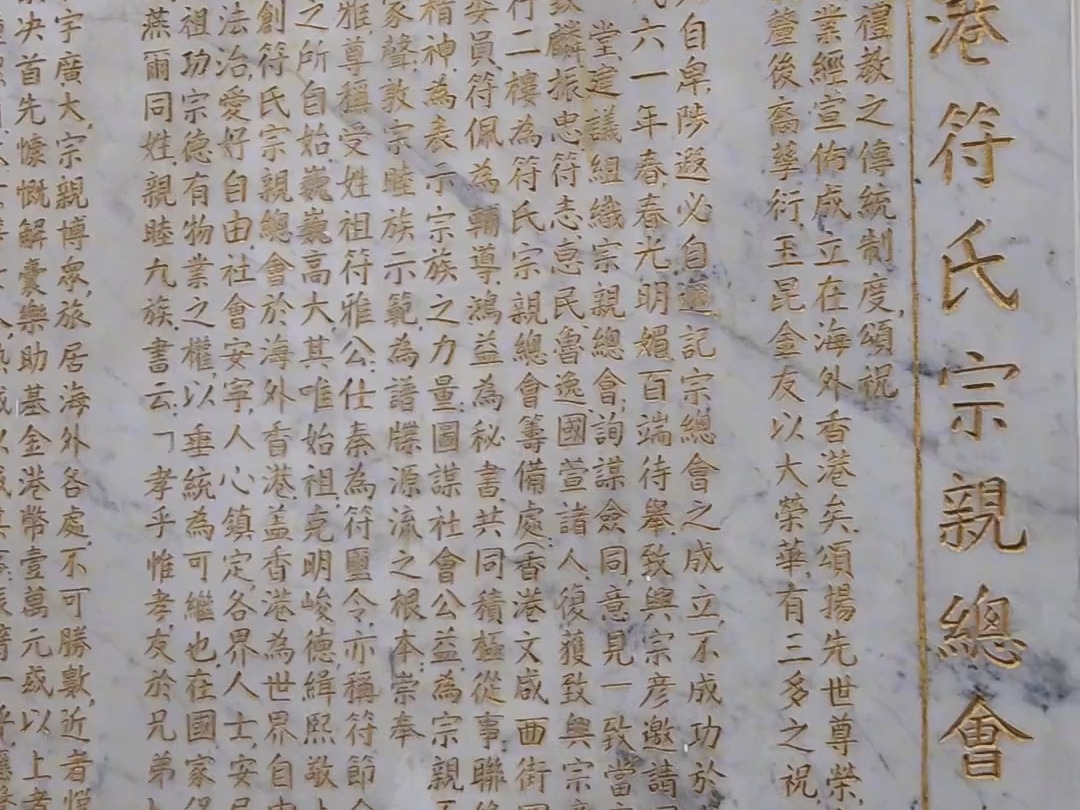 港符氏宗親總會
禮教之傳統制度,頌祝
業經宣佈成立在海外香港矣.頌揚先世尊榮,
釐後裔孳衍,玉昆金友以大榮華,有三多之祝
自卑,陟遐必自邇,記宗總會之成立,不成功於
六一年春,春光明媚,百端待舉,致興宗彥邀請
堂,建議組織宗親總會,詢謀僉同,意見一致,當
麟振忠符志惠民,魯逸國萱諸人,復獲致興宗
行二樓為符氏宗親總會籌備處,香港文咸西街
員,符佩為輔導,鴻益為秘書,共同積極從事聯
楷神為表示宗族之力量,圖謀社會公益,為宗親
家聲,敦宗睦族,示範,為譜牒源流之根本,崇奉
雅,尊稱受姓祖符雅公,仕秦為符璽令,亦稱符節
之所自始,巍巍高大,其唯始祖,克明峻德,緝熙敬
創符氏宗親總會於海外香港,盖香港為世界自
法治,愛好自由,社會安寧,人心鎮定,各界人士,安
祖功宗德,有物業之權,以垂統為可繼也,在國家
燕爾同姓,親睦九族,書云:「孝乎惟孝,友於兄弟
宇廣大,宗親博眾,旅居海外各處,不可勝數,近者
決首先慷慨解囊樂助基金港幣壹萬元或以上者